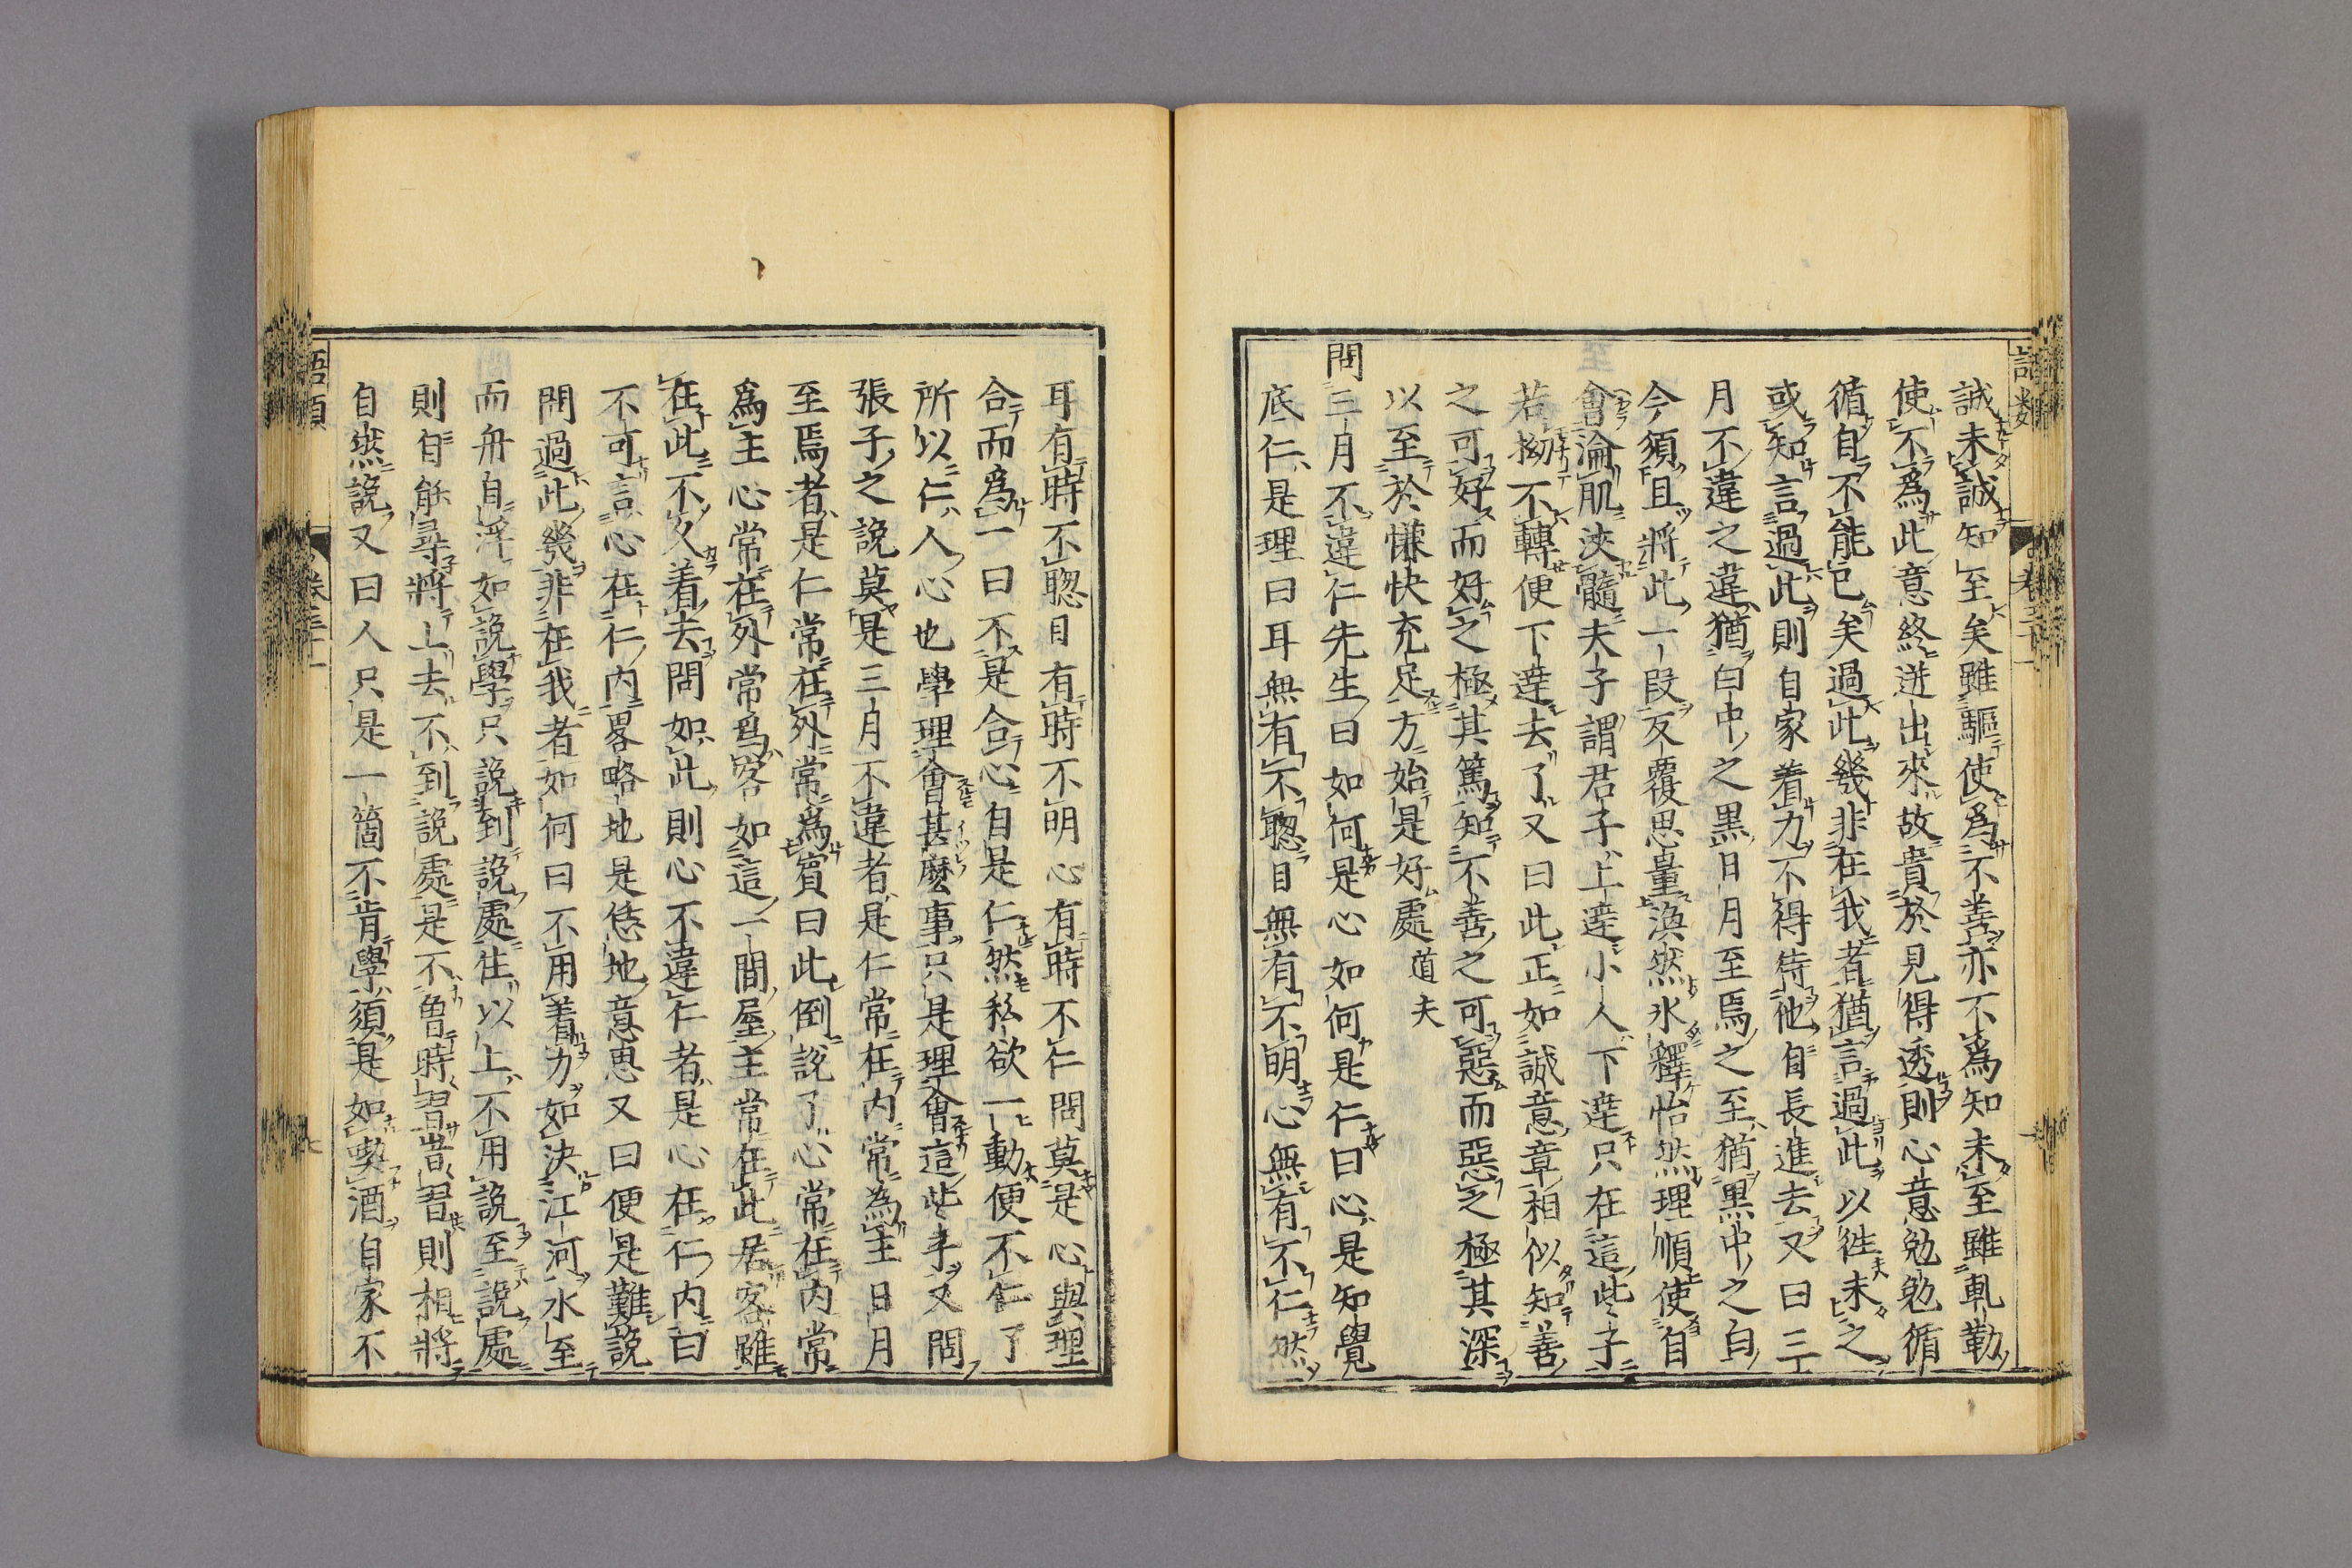 誠未誠知至矣雖驅使爲不善亦不爲知未至雖軋勒
使不爲此意終迸出來故貴於見得透則心意勉勉循
循自不能已矣過此幾非在我者猶言過此以徃未之
或知言過此則自家着力不得待他自長進去又曰三
月不違之違猶曰中之黑日月至焉之至猶黑中之白
今須且將此一段反覆思量渙然氷釋怡然理順使自
會淪肌浹髓夫子謂君子上達小人下達只在這些子
若拗不轉便下達去了又曰此正如誠意章相似知善
之可好而好之極其篤知不善之可惡而惡之極其深
以至於慊快充足方始是好處 道夫
問三月不違仁先生曰如何是心如何是仁曰心是知覺
底仁是理曰耳無有不聰目無有不明心無有不仁然
耳有時不聰目有時不明心有時不仁問莫是心與理
合而爲一曰不是合心自是仁然私欲一動便不仁了
所以仁人心也學理會甚麽事只是理會這些子又問
張子之說莫是三月不違者是仁常在内常為主日月
至焉者是仁常在外常爲賓曰此倒說了心常在内常
爲主心常在外常爲客如這一間屋主常在此居客雖
在此不久着去問如此則心不違仁者是心在仁内曰
不可言心在仁内畧略地是恁地意思又曰便是難說
問過此幾非在我者如何曰不用着力如決江河水至
而舟自浮如說學只說到說處住以上不用說至說處
則自能尋將上去不到說處是不魯時習昔習則相將
自然說又曰人只是一箇不肯學須是如喫酒自家不
語類
卷三十一